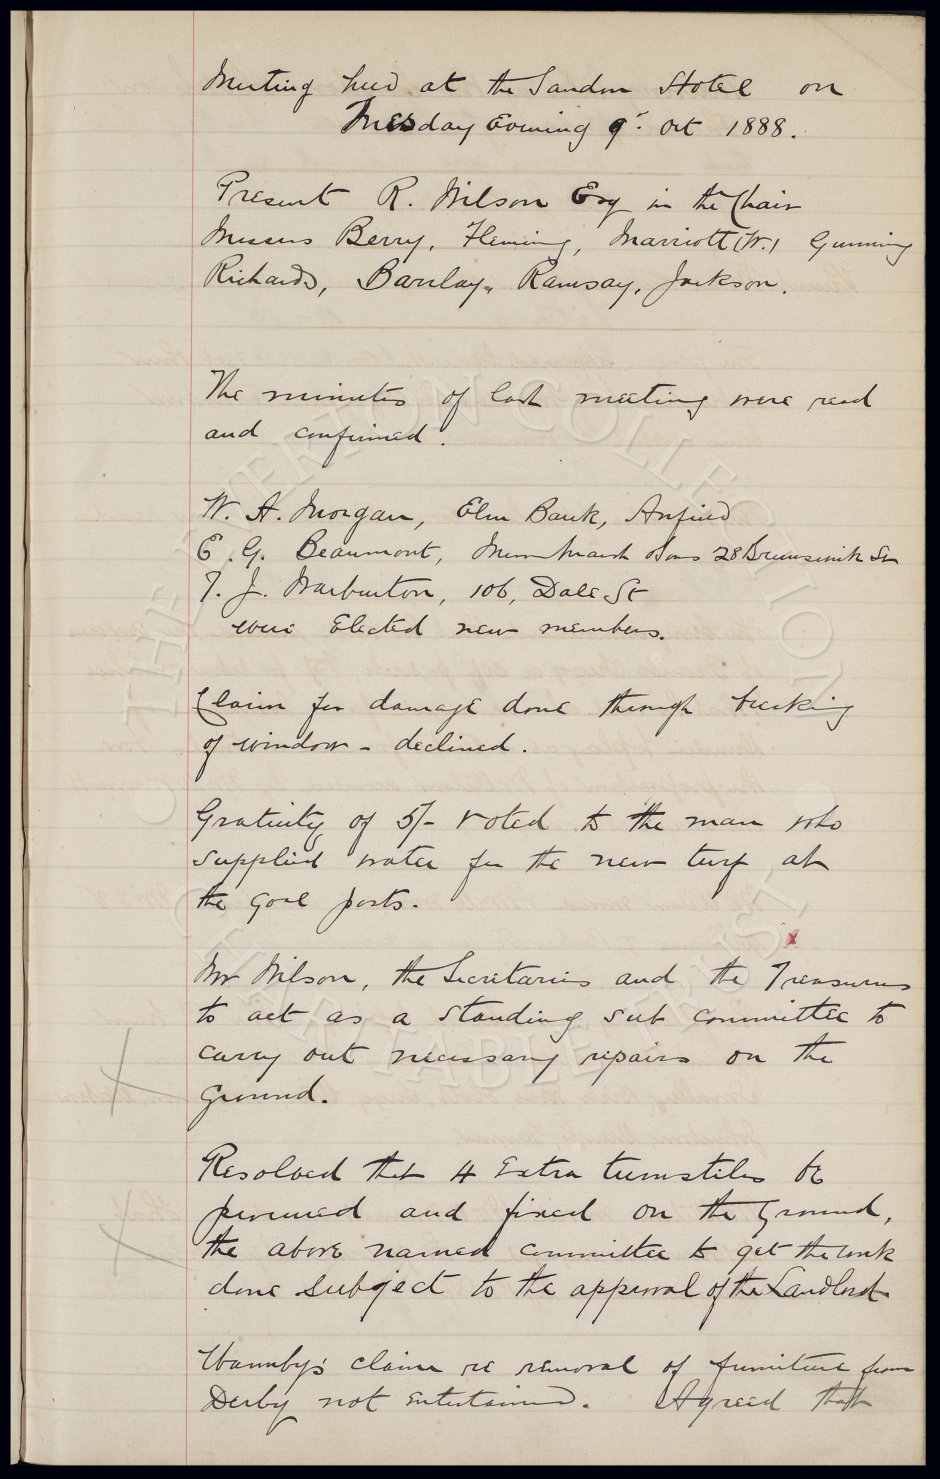 Meeting held at the Sandon Hotel on
Tuesday Evening 9th Oct 1888.
Present R. Wilson Esq in the Chair
Messrs Berry, Fleming, Marriott (W.) Gunning
Richards, Barclay, Ramsay, Jackson.
The minutes of last meeting were read
and confirmed.
W. A. Morgan, Elm Bank, Anfield
E. G. Beaumont, Sons 28 Brunswick St
T. J. Warburton, 106, Dale St
were Elected new members.
Claim for damage done through breaking
of window - declined.
Gratuity of 5/- voted to the man who
supplied water for the new turf at
the goal posts.
x
Mr Wilson, the Secretaries and the Treasurers
to act as a standing sub committee to
carry out necessary repairs on the
ground.
Resolved that 4 Extra turnstiles be
procured and fixed on the Ground,
the above named committee to get the work
done subject to the approval of the Landlord
claim re removal of furniture from
Derby not entertained. Agreed that
THE EVERTON COLLECTION
CHARITABLE TRUST